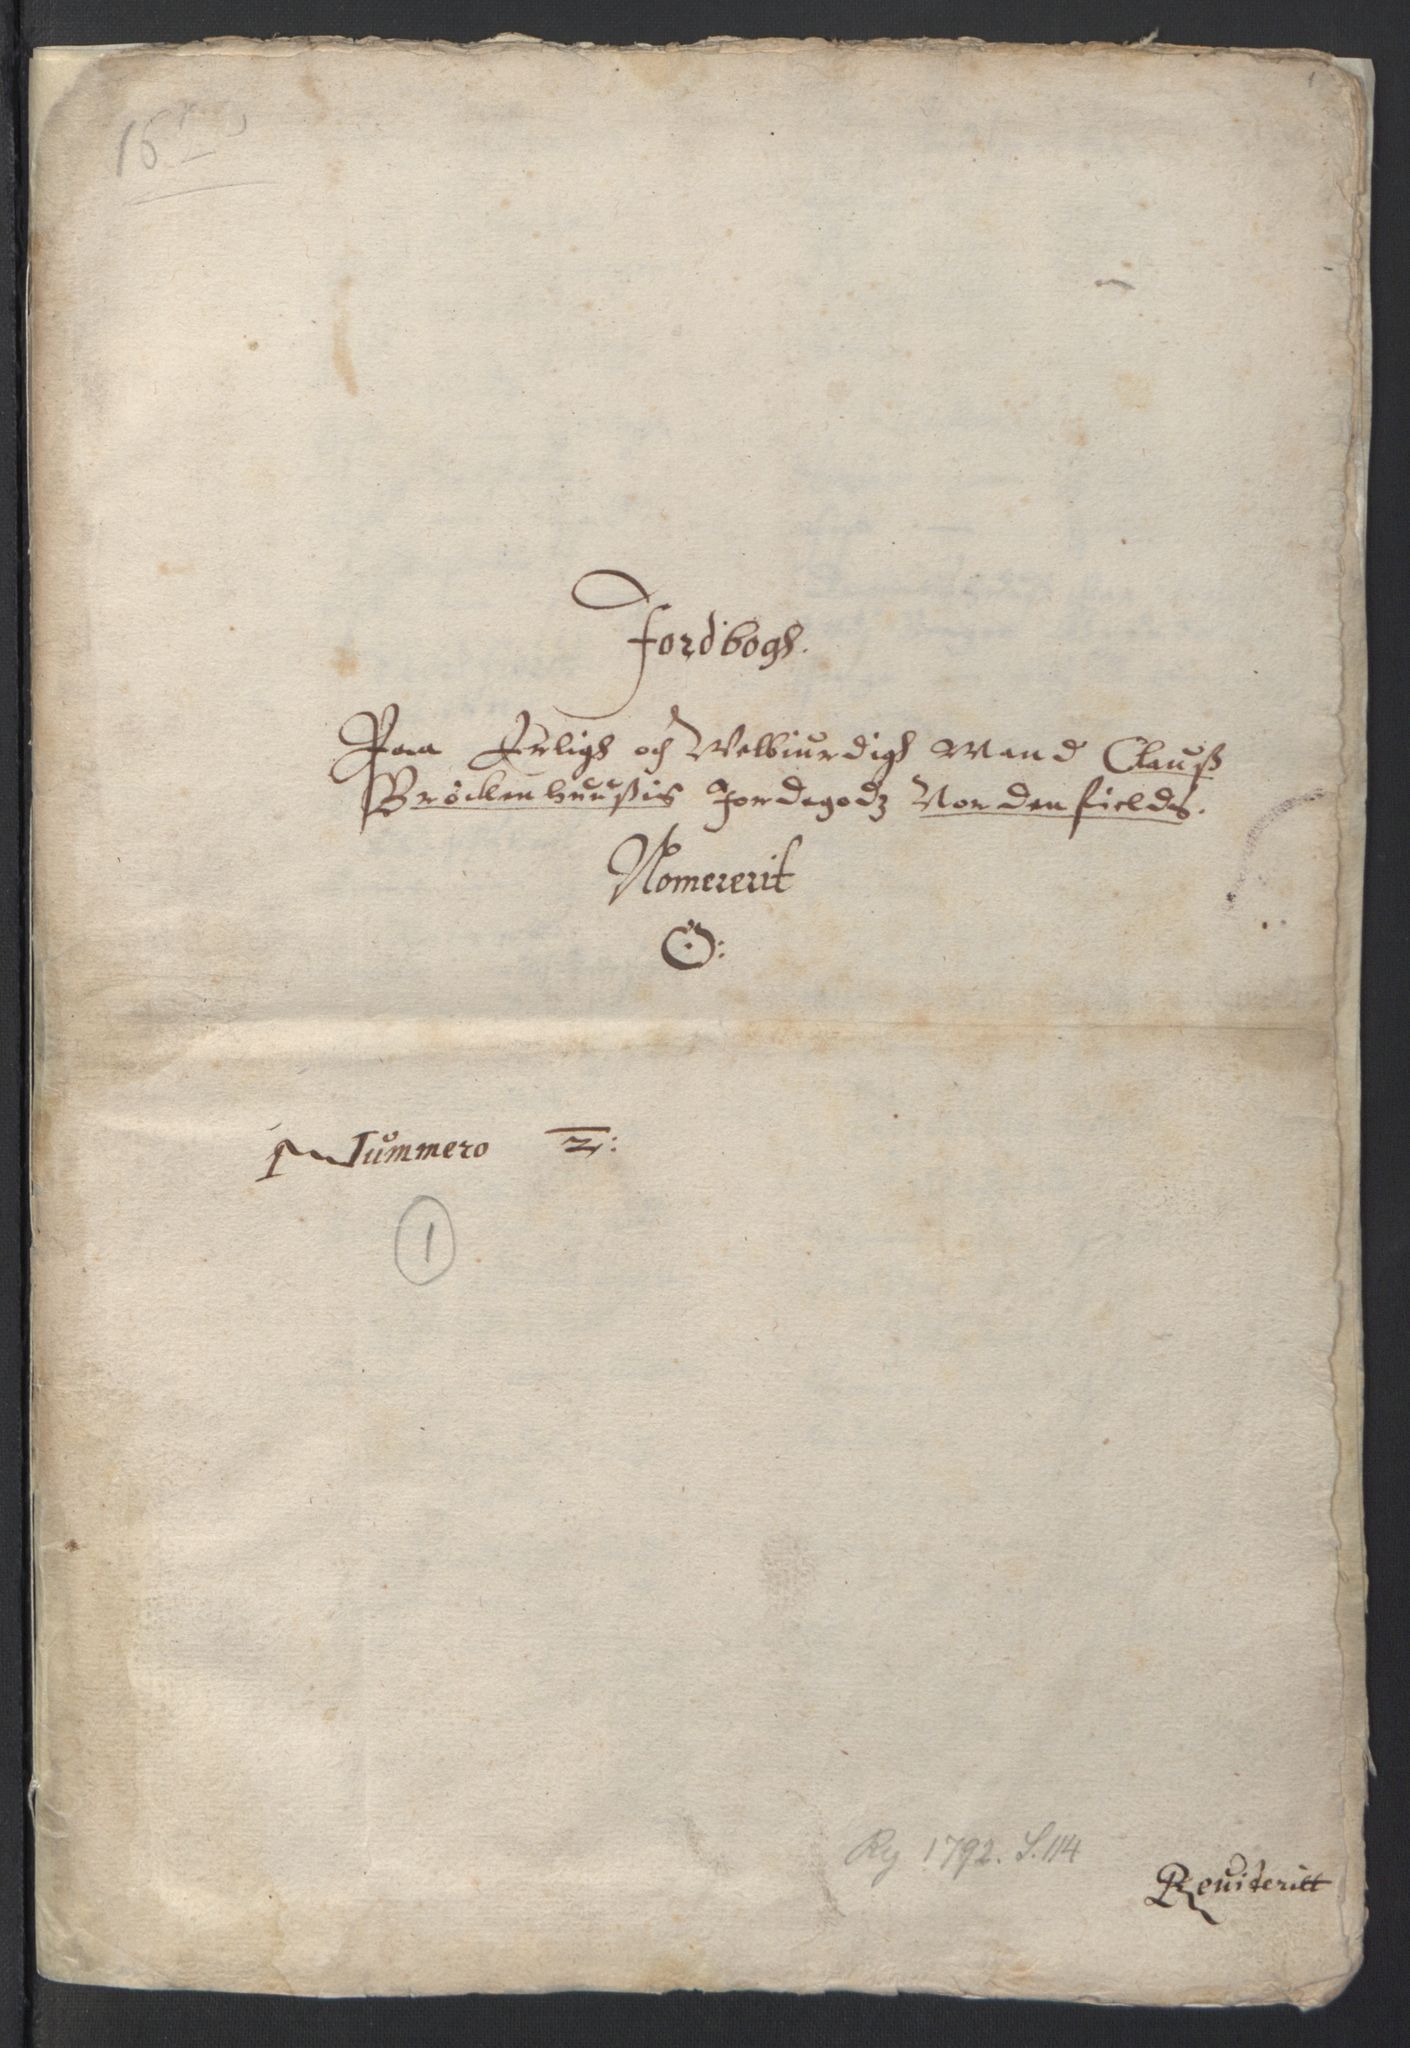 1
Jordbogh.
Paa Erligh och Welbiurdigh Mand Clauß
Bröckenhuußis Jordegodz Norden fields.
Nomererit
O:
Nummero 2:
1
Ry 1792. S. 114
Reuideritt